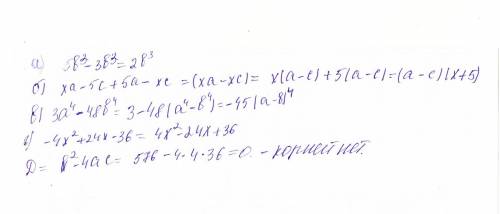 а) 5в³-3в³=2в³
б) xa-5c+5a-xc =(xa-xc)= x(a-c)+5(a-c)=(a-c)(x+5)
в) 3a⁴-48в⁴= 3-48(a⁴-в⁴)=-45(a-в)⁴
г) -4x²+24x-36= 4x²-24x+36
Д= в²-4ac= 576-4·4·36=0. - корней нет.